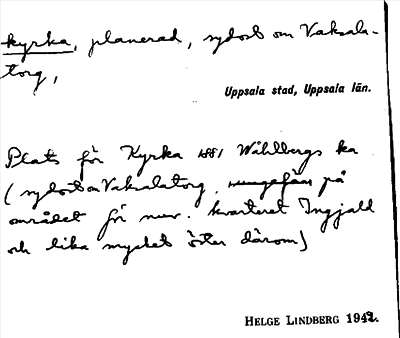 kyrka, planerad, sydost om Vaksala-
torg,
Uppsala stad, Uppsala län.
Plats för Kyrka 1881 Wåhlbergs ka
(sydost om Vaksalatorg, ungefär på
området för nuv. kvarteret Ingjald
och lika mycket öster därom)
HELGE LINDBERG 1942.